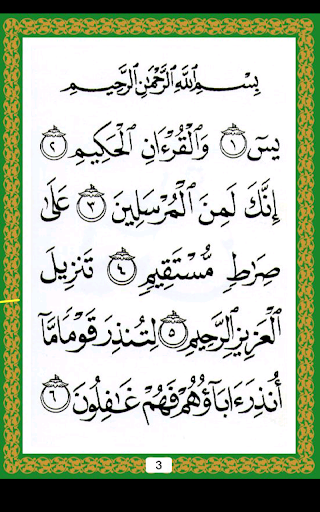 بِسْمِ ٱللَّهِ ٱلرَّحْمَٰنِ ٱلرَّحِيمِ
يسٓ ١ وَٱلْقُرْءَانِ ٱلْحَكِيمِ ٢
إِنَّكَ لَمِنَ ٱلْمُرْسَلِينَ ٣ عَلَىٰ
صِرَٰطٍ مُّسْتَقِيمٍ ٤ تَنزِيلَ
ٱلْعَزِيزِ ٱلرَّحِيمِ ٥ لِتُنذِرَ قَوْمًا مَّآ
أُنذِرَ ءَابَآؤُهُمْ فَهُمْ غَٰفِلُونَ ٦
3